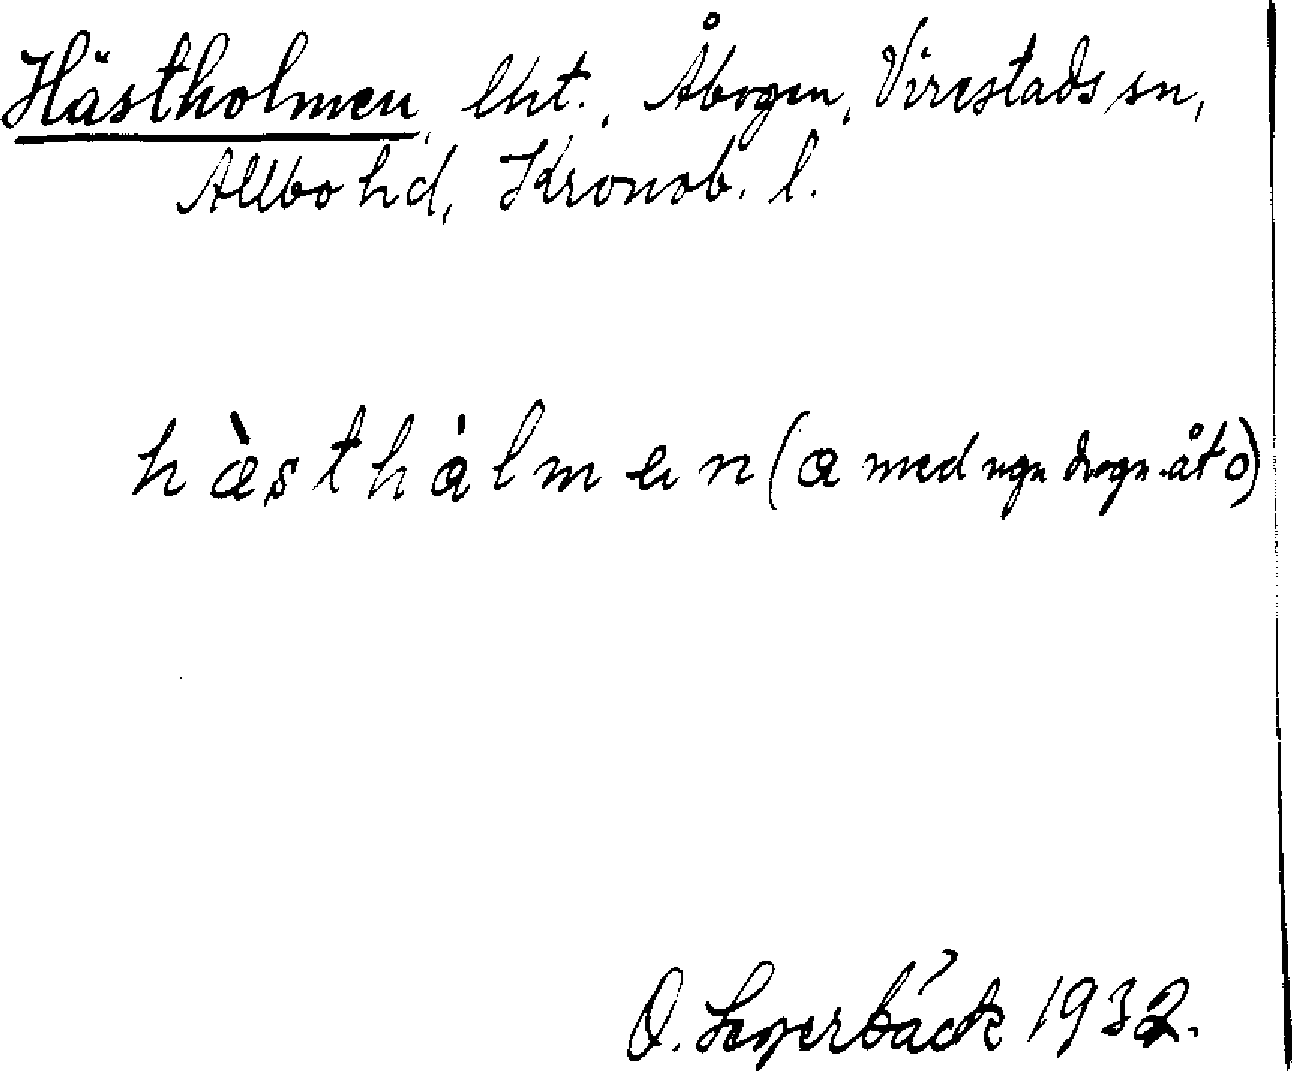 Hästholmen, lht., Åbogen, Virestads sn,
Allbo hd, Kronob. l.
hàsthålmen (a med ngn dragn. åt o)
O. 1932.